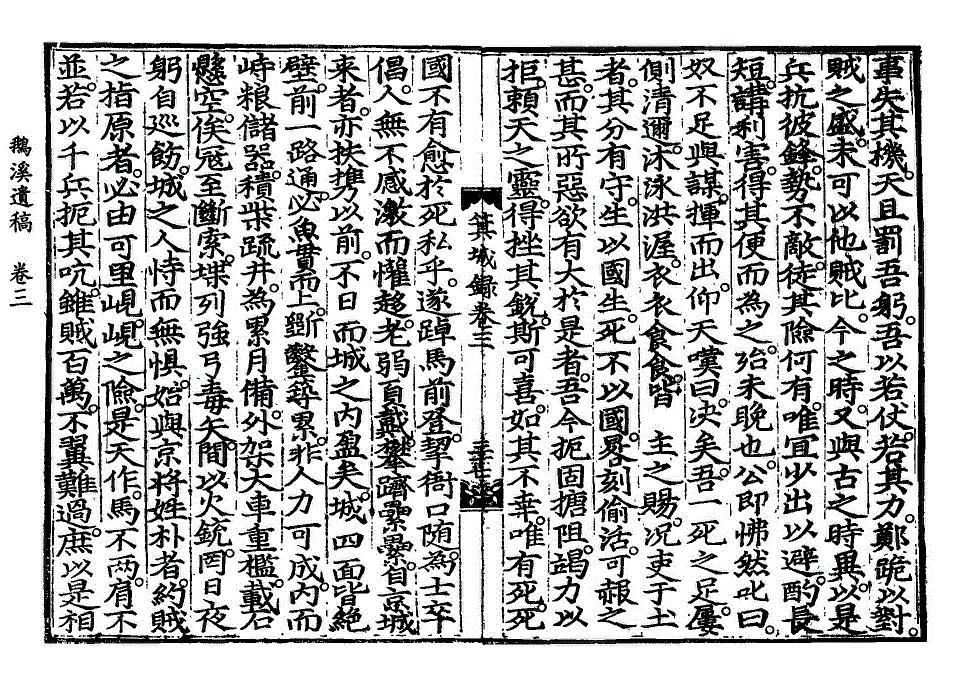 事失其機。天且罰吾躬。吾以若伏。若其力。鄭跪以對。
賊之盛。未可以他賊比。今之時。又與古之時異。以是
兵抗彼鋒。勢不敵。徒其險何有。唯宜少出以避。酌長
短。講利害。得其便而為之。殆未晚也。公即怫然叱曰。
奴不足與謀。揮而出。仰天嘆曰。决矣。吾一死之足。屢
側清邇。沐泳洪渥。衣衣食食。皆 主之賜。况吏于土
者。其分有守。生以國生。死不以國。晷刻偷活。可赧之
甚。而其所惡欲有大於是者。吾今扼固搪阻。竭力以
拒。賴天之靈。得挫其銳。斯可喜。如其不幸。唯有死。死
箕城錄卷三
國不有愈於死私乎。遂踔馬前登。挈衙口陏。為士卒
倡。人無不感激而懼趍。老弱負戴。攀躋纍纍。自京城
来者。亦扶携以前。不日而城之内盈矣。城四面皆絶
壁。前一路通。必魚貫而上。斷鑿蕁累。非人力可成。内而
峙粮儲器。積柴疏井。為累月備。外架大車重檻。載石
懸空。俟冦至斷索。堞列強弓毒矢。間以火銃。罔日夜
躬自巡飭。城之人恃而無惧。始與京将姓朴者。約賊
之指原者。必由可里峴。峴之險。是天作。馬不两。肩不
並。若以千兵扼其吭。雖賊百萬。不翼難過。庶以是相
鵝溪遺稿 卷三